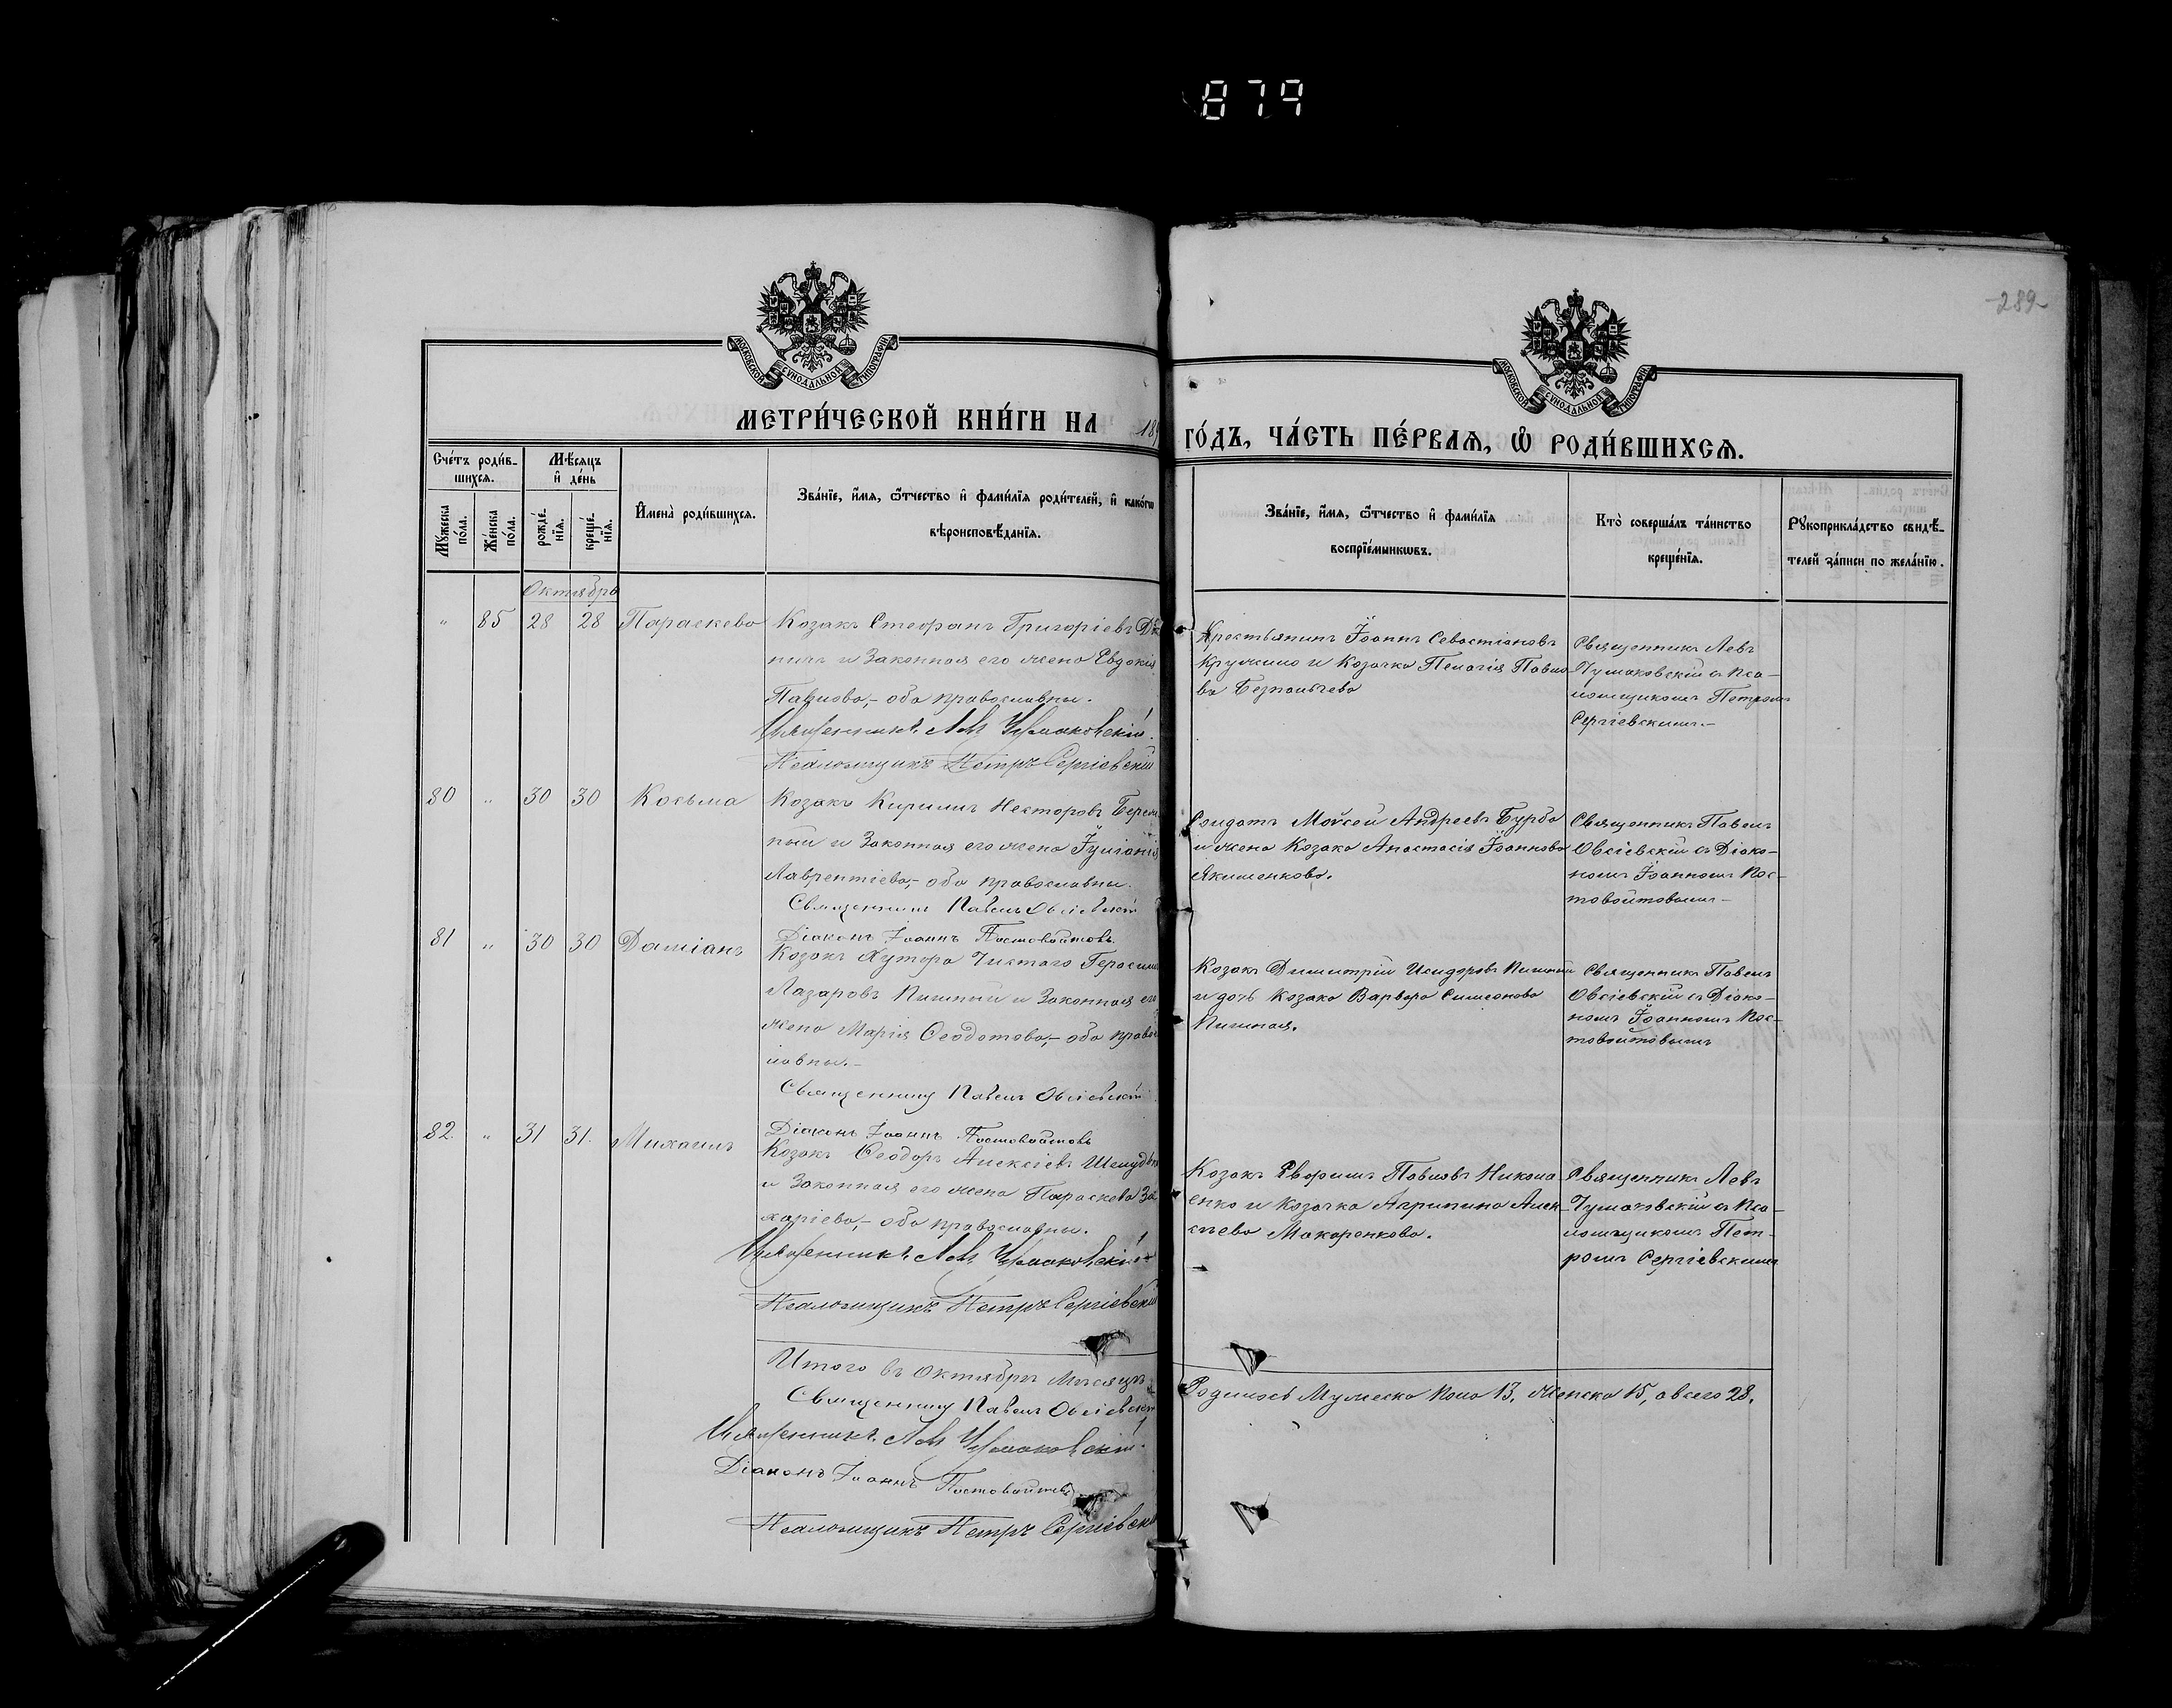 879
289
МОСКОВСКОЙ СѴНОДАЛЬНОЙ ТИПОГРАФІИ
МОСКОВСКОЙ СѴНОДАЛЬНОЙ ТИПОГРАФІИ
МЕТРИ́ЧЕСКОЙ КНИ́ГИ НА 18
ГО́ДЪ, ЧА́СТЬ ПЕ́РВАѦ, Ѡ РОДИ́ВШИХСѦ.
Сче́тъ роди́в-
шихся.
Мѣ́сяцъ
и де́нь
Му́жеска по́ла.
Же́нска по́ла.
рожде́-
нія.
креще́-
нія.
Имена̀ роди́вшихся.
Зва́ніе, и́мя, ѻ́тчество и фами́лія роди́телей, и како́гѡ
вѣроисповѣ́данія.
Зва́ніе, и́мя, ѻ́тчество и фами́лія
воспріе́мникѡвъ.
Кто̀ соверша́лъ та́инство
креще́нія.
Рукоприкла́дство свидѣ́-
телей за́писи по жела́нію.
Октябрь
" 85 28 28 Параскева
Козакъ Стефанъ Григоріевъ
и Законная его жена Евдокія
Павлова,- оба православны.
Священникъ Левъ Чумаковскій.
Псаломщикъ Петръ Сергіевскій
Крестьянинъ Іоаннъ Севастіановъ
Кружило и Козачка Пелагія Павло-
ва
Священникъ Левъ
Чумаковскій съ Пса-
ломщикомъ Петромъ
Сергіевскимъ.-
80 " 30 30 Косьма
Козакъ Кириллъ Несторовъ
ный и Законная его жена Іуліанія
Лаврентіева,- оба православны.
Священникъ Павелъ Овсіевскій
Діаконъ Іоаннъ Постовойтовъ.
Солдатъ Моѵсей Андреевъ Бурба
и жена Козака Анастасія Іоаннова
Якименкова.
Священникъ Павелъ
Овсіевскій съ Діако-
номъ Іоанномъ Пос-
товойтовымъ-
81 " 30 30 Даміанъ
Козакъ Хутора Чистаго Герасимъ
Лазаровъ и Законная его
жена Марія Ѳеодотова,- оба право
славны.-
Священникъ Павелъ Овсіевскій
Діаконъ Іоаннъ Постовойтовъ
Козакъ Димитрій Исидоровъ
и дочь Козака Варвара Симеонова
Священникъ Павелъ
Овсіевскій съ Діако-
номъ Іоанномъ Пос-
товойтовымъ
82. " 31 31. Михаилъ
Козакъ Ѳеодоръ Алексіевъ
и Законная его жена Параскева За
харіева,- оба православны.
Священникъ Левъ Чумаковскій
Псаломщикъ Петръ Сергіевскій
Козакъ Павловъ Никола
енко и Козачка Агрипина Алек-
сѣева Макаренкова.
Священникъ Левъ
Чумаковскій съ Пса-
ломщикомъ Пет-
ромъ Сергіевскимъ
Итого въ Октябрѣ Мѣсяцѣ
Родилось Мужеска пола 13, Женска 15, а всего 28.
Священникъ Павелъ Овсіевскій
Священникъ Левъ Чумаковскій.
Діаконъ Іоаннъ Постовойтовъ
Псаломщикъ Петръ Сергіевскій